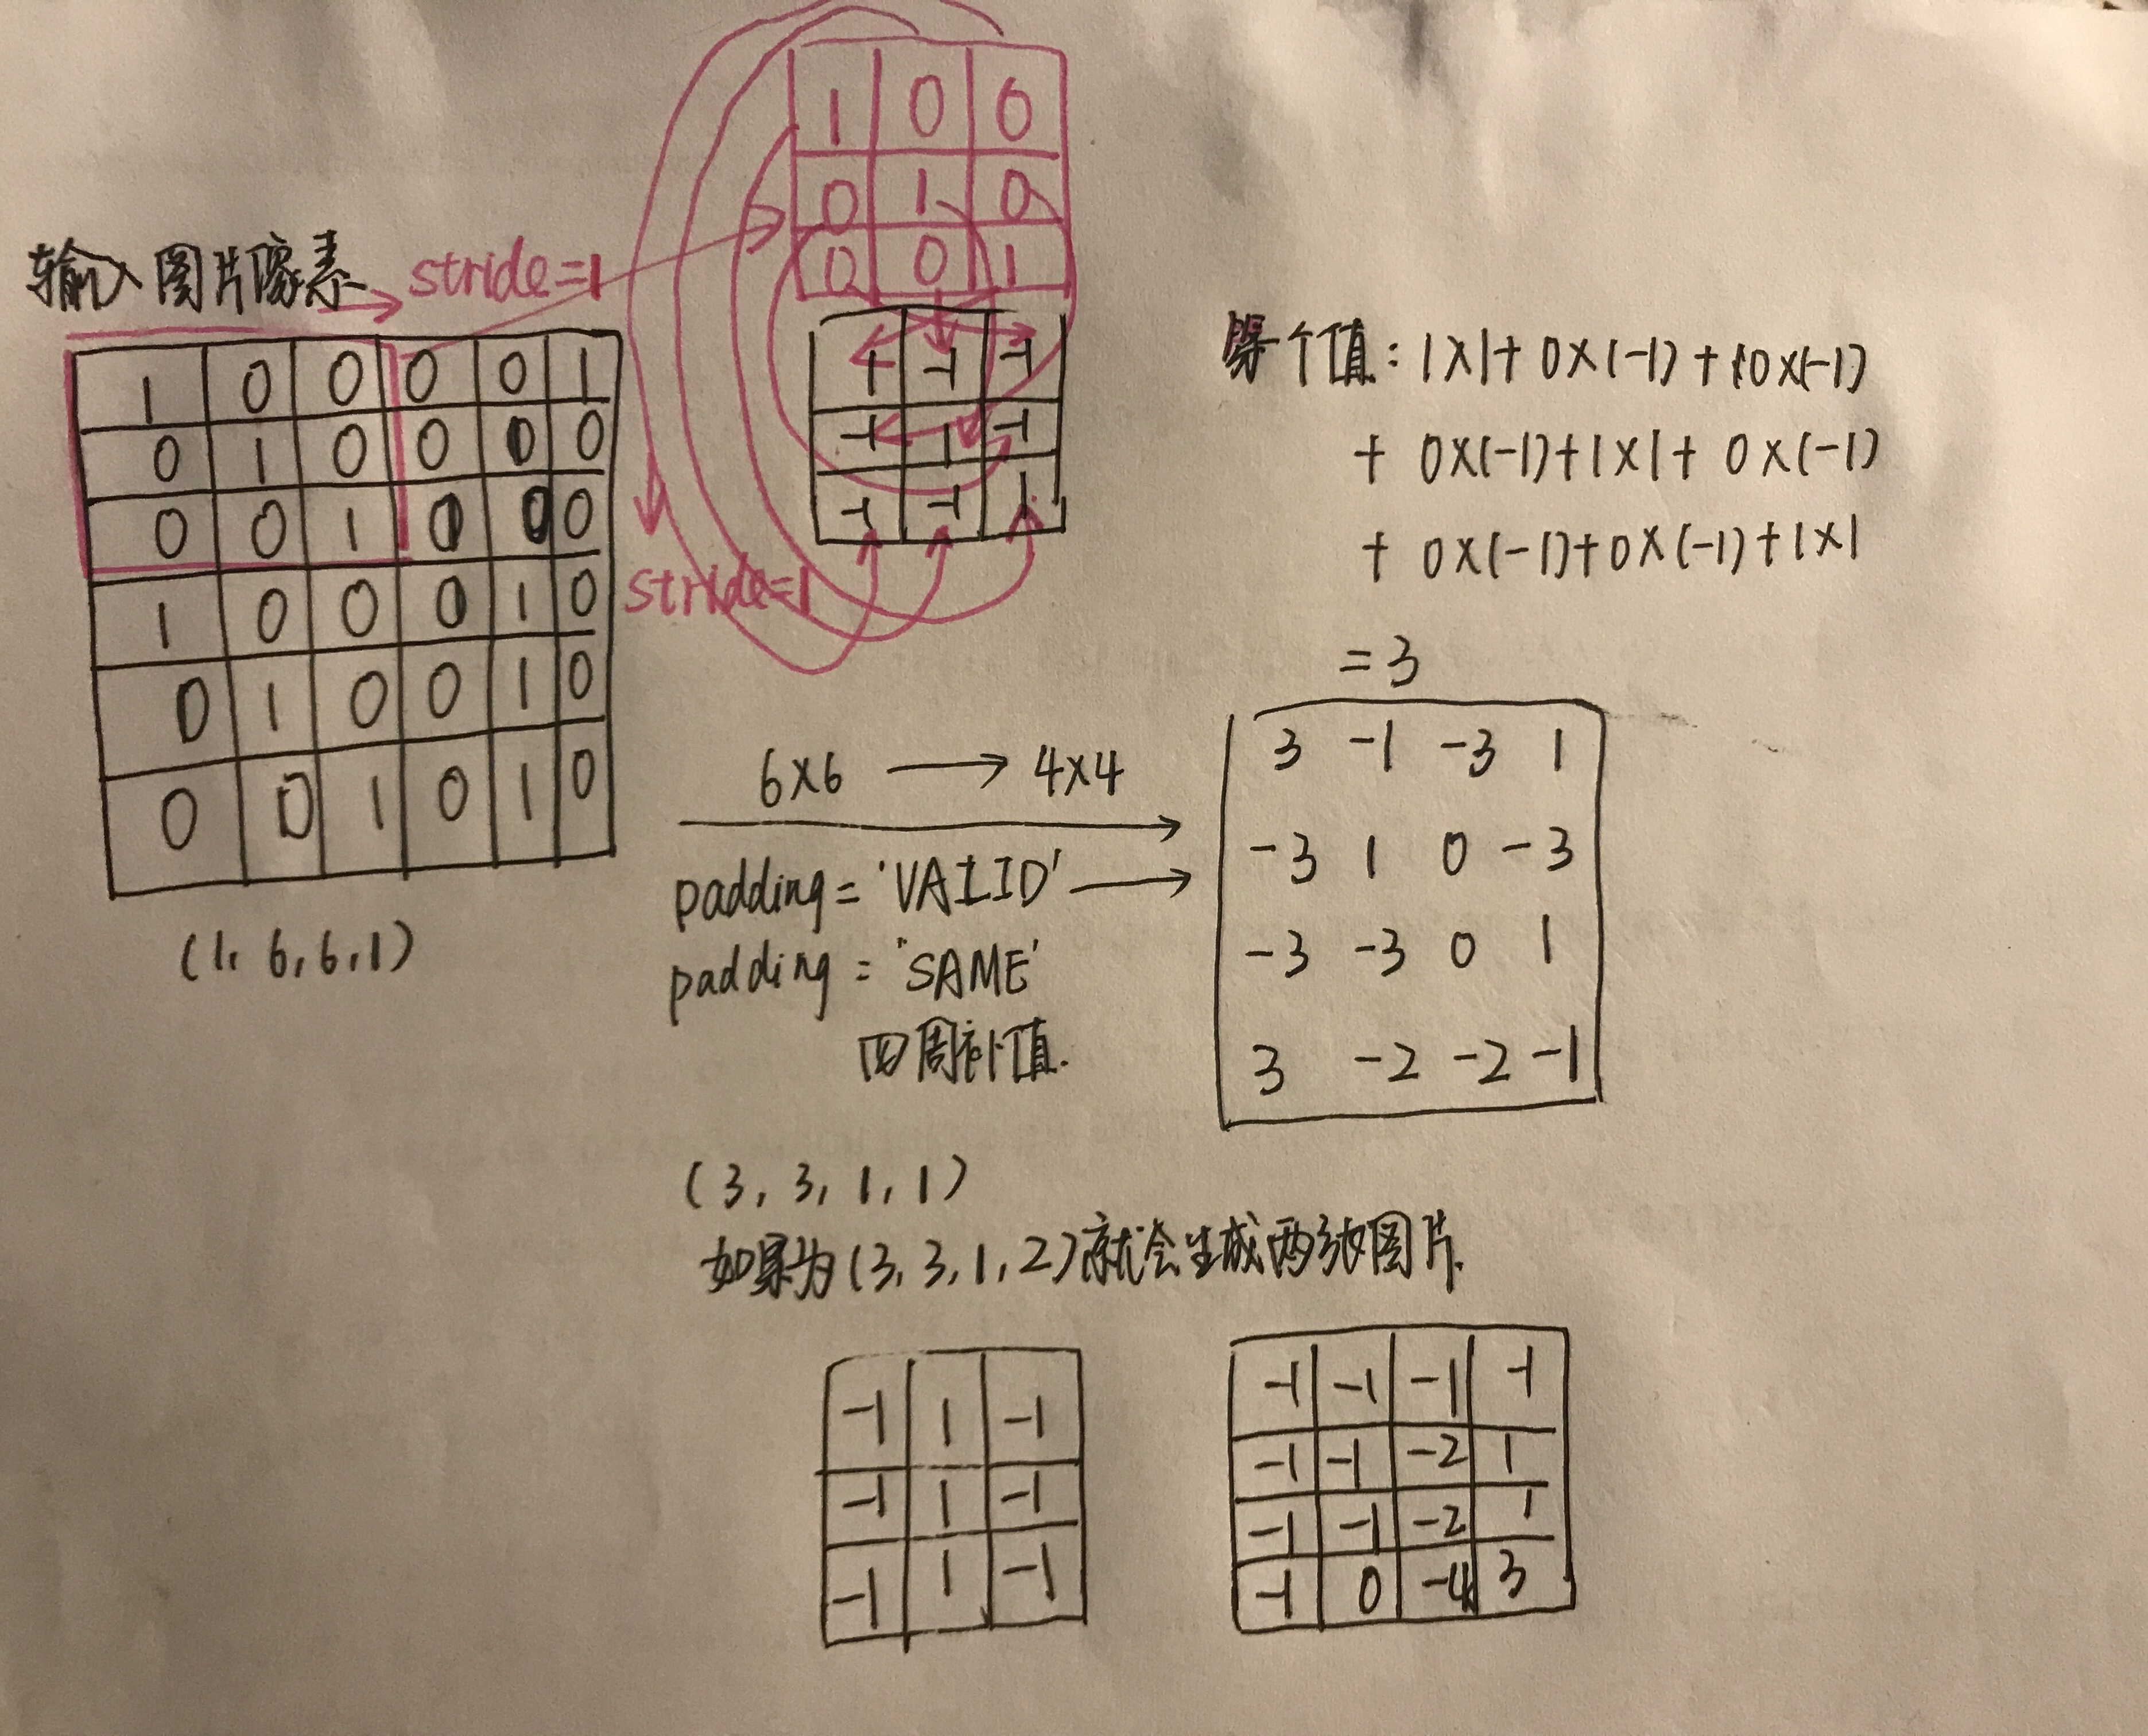 1 0 0
0 1 0
0 0 1
输入图片像素
stride=1
1 0 0 0 0 1
0 1 0 0 0 0
0 0 1 0 0 0
1 0 0 0 1 0
0 1 0 0 1 0
0 0 1 0 1 0
(1, 6, 6, 1)
1 -1 -1
-1 1 -1
-1 -1 1
stride=1
每个值: 1×1+ 0×(-1) + 0×(-1)
+ 0×(-1)+1×1+ 0×(-1)
+ 0×(-1)+0×(-1)+1×1
=3
6×6 → 4×4
padding= 'VALID' →
padding = 'SAME'
四周补值.
3 -1 -3 1
-3 1 0 -3
-3 -3 0 1
3 -2 -2 -1
(3, 3, 1, 1)
如果为(3, 3, 1, 2)就会生成两张图片.
-1 1 -1
-1 1 -1
-1 1 -1
-1 -1 -1 -1
-1 -1 -2 1
-1 -1 -2 1
-1 0 -4 3